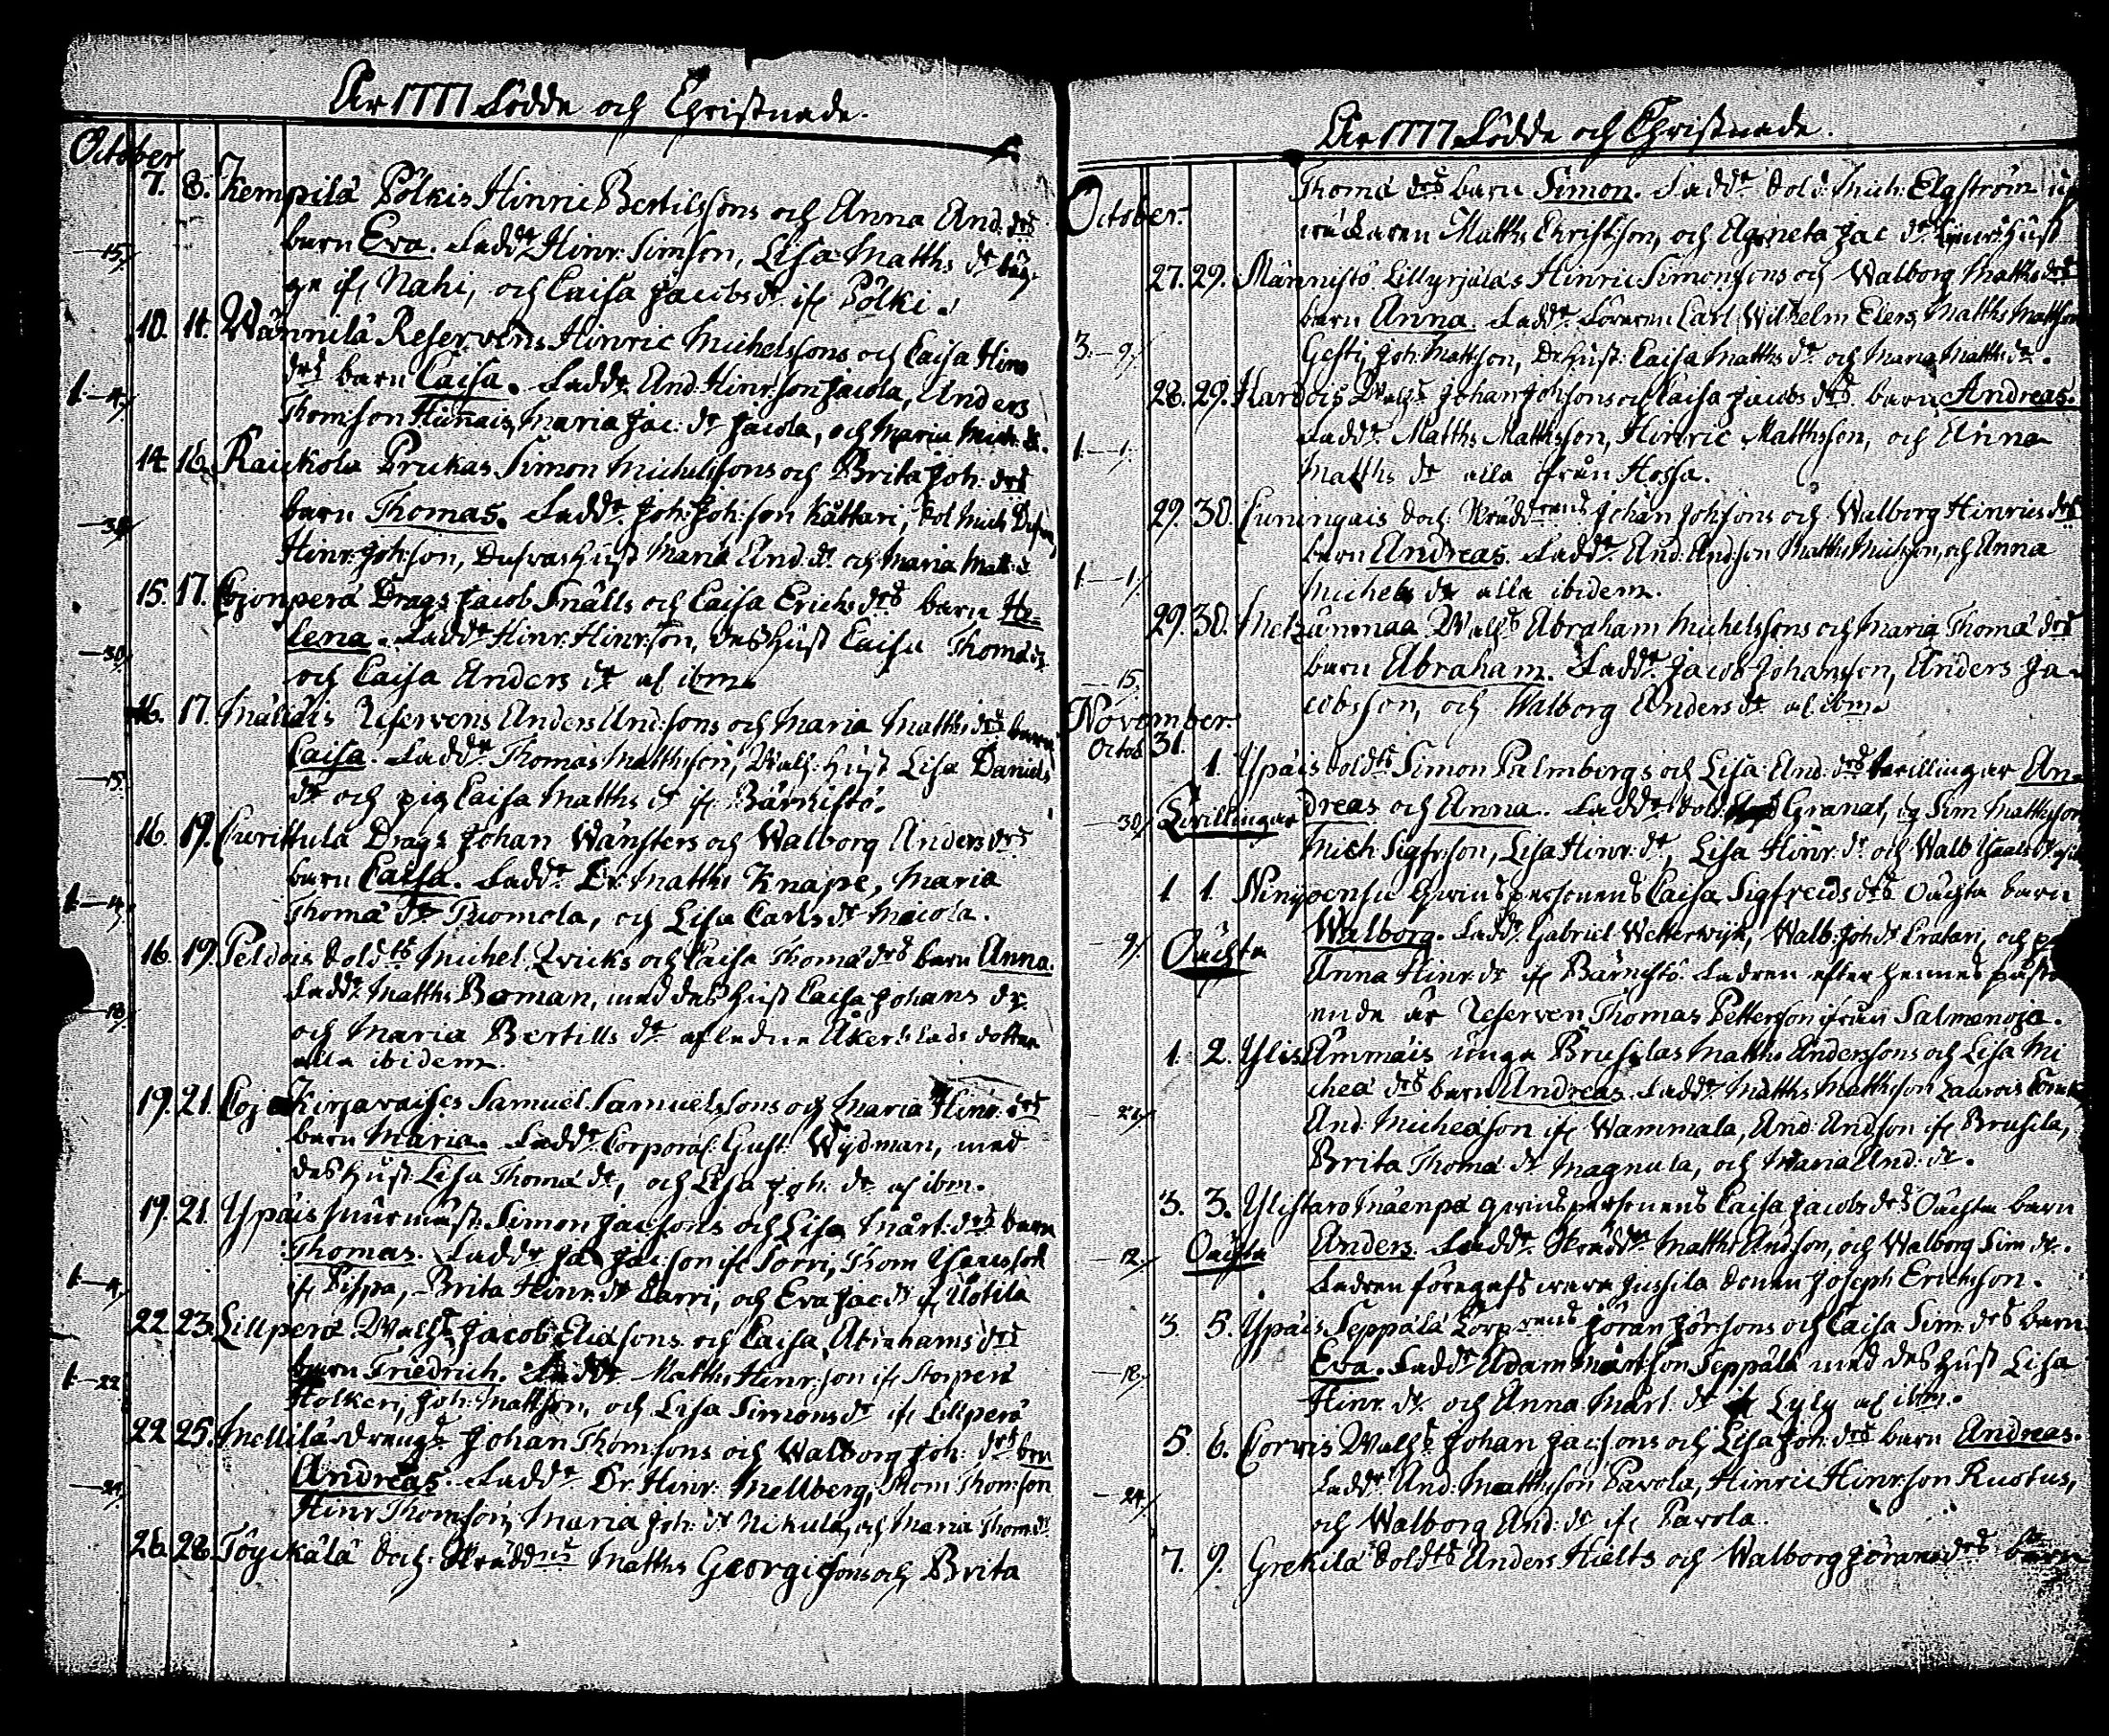 År 1777 Födde och Christnade.
October
7. 8. Kempilä Pölkis Hinric Bertilssons och Anna And. drs
15. barn Eva. Fadd. Hinr: Simson, Lisa Matths dr
if Nahi, och Caisa Jacobs dr if Pölki.
10. 11. Wännilä Reservens Hinric Michelssons och Caisa Hinr
1.—4. drs barn Caisa. Fadd. And: Hinr:son Jacola, Anders
Thomson Hünnais, Maria Jac: dr Jacola, och Maria Mich: dr.
14. 16. Raickola Prukas Simon Michelssons och Brita Joh: drs
barn Thomas. Fadd. Joh: Joh:son Kåttari, Sol Mich
Hinr: Joh:son, hust Maria And. dr och Maria Matt: d
15. 17. Cojonperä Drag: Jacob Snälls och Caisa Erichs drs barn He-
30. lena. Fadd. Hinr: Hinr:son, des hust Caisa Thomä dr
och Caisa Anders dr af ibm.
16. 17. Reservens Anders And:sons och Maria Matths drs barn
15. Caisa. Fadd. Thomas Matthsson, hust Lisa Daniels
dr och pig Caisa Matths dr if Bärnistö.
16. 19. Curittula Drags Johan Wänsters och Walborg Anders drs
1.—4. barn Caisa. Fadd. Dr: Matths Knape, Maria
Thomä dr Tuomola, och Lisa Carls dr Maiola.
16. 19. Peldois Sold:ts Michel Qvicks och Caisa Thomä drs barn Anna.
18. Fadd. Matths Boman, med des hust Caisa Johans dr
och Maria Bertills dr aflidne Åkerblads dotter
alla ibidem.
19. 21. Coj Kirjavaises Samuel Samuelssons och Maria Hinr: drs
barn Maria. Fadd. Corporal: Gust: Wydman, med
des hust Lisa Thomä dr, och Lisa Joh: dr af ibm.
19. 21. Ypäis Simon Jacsons och Lisa Mårt: drs barn
1.—4. Thomas. Fadd. Jac Jac:son if Sorri, Thom Ysacsson
if Pispa, Brita Hinr: dr Carri, och Eva Jac dr if Uotila
22. 23. Lillperä Jacob Eliasons och Caisa Abrahams drs
1.—22. barn Friedrich. Fadd. Matths Hinr:son if Storperä
Holkeri, Joh: Mattson, och Lisa Simons dr if Lillperä
22. 25. Mellilä drengs Johan Thomsons och Walborg Joh: drs brn
Andreas. Fadd. Dr Hinr: Mellberg, Thom Thomson
Hinr Thomson, Maria Joh: dr Nikula, och Maria Thom dr
26. 28. Töyckälä Soch: Skrädd:rs Matths Georgissons och Brita
År 1777 Födde och Christnade.
October.
Thomä drs barn Simon. Fadd. Sold: Mich: Elgström
Matths Christson, och Agneta Jac dr hust
27. 29. Männistö Lillyrjäläs Hinric Simonsons och Walborg Matths drs
barn Anna. Fadd. Carl Wilhelm Elers, Matths Mattson
3.—9. Gesti, Joh: Mattson, Caisa Matths dr och Maria Matths dr.
28. 29. Hardois Johan Johsons och Caisa Jacobs drs barn Andreas.
1.—1. Fadd. Matths Matthsson, Hinric Matthsson, och Anna
Matths dr alla från Hossa.
29. 30. Cuningais Soch Skrädd:rens Johan Johsons och Walborg Hinrics drs
barn Andreas. Fadd. And: And:son Matths Michson, och Anna
1.—1. Michels dr alla ibidem.
29. 30. Metzänmaa Abraham Michelssons och Maria Thomä drs
barn Abraham. Fadd. Jacob Johansson, Anders Ja-
15. cobsson, och Walborg Anders dr af ibm.
November.
Octob 31.
1. Ypäis Sold:ts Simon Palmbergs och Lisa And: drs tvillingar An-
30. Tvillingar dreas och Anna. Fadd. Sold: Granat, Sim: Matthsson
Mich Sigfr:son, Lisa Hinr: dr, Lisa Hinr: dr och Walb Ysacs dr
1. 1. Ninipensu Qwinspersonens Caisa Sigfreds drs Oächta barn
9. Oächta Walborg. Fadd. Gabriel Wetterwijk, Walb: Joh dr Cratari, och p
Anna Hinr: dr if Bärnistö. Fadren efter hennes påstå
ende är Reserven Thomas Pettersson ifrån Salmenoja.
1. 2. Ylis Ämmäis unga Brusilas Matths Anderssons och Lisa Mi
cheä drs barn Andreas. Fadd. Matths Matthsson
21. And: Micheäson if Wammala, And: Andson if Brusila,
Brita Thomä dr Magnula, och Maria And: dr.
3. 3. Ylistaro Mäenpä qwinspersonens Caisa Jacobs drs Oächta barn
12. Oächta Anders. Fadd. Skrädd:n Matths Andson, och Walborg Sim dr.
Fadren föregafs vara Jussila Sonen Joseph Erichsson.
3. 5. Ypäis Seppälä Torp:rens Jöran Jörsons och Caisa Sim: drs barn
18. Eva. Fadd. Adam Märtson Seppälä med des hust Lisa
Hinr: dr och Anna Märt: dr if Lyly af ibm.
5. 6. Corvis Johan Jacsons och Lisa Joh: drs barn Andreas.
24. Fadd. And: Matthsson Pavola, Hinric Hinr:son Ruotus,
och Walborg And: dr if Pavola.
7. 9. Grekilä Sold:ts Anders Hielts och Walborg Jörans drs barn